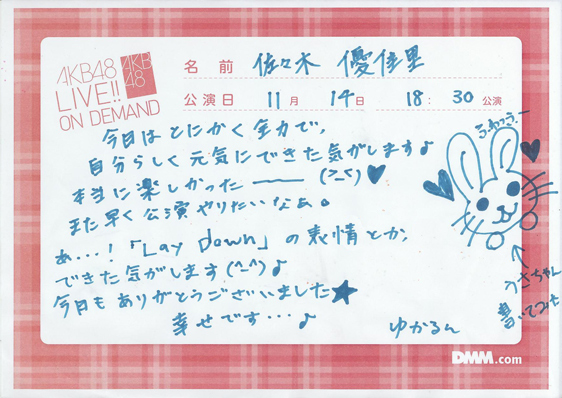 AKB48
LIVE!!
ON DEMAND
AKB
48
名前 佐々木 優佳里
公演日 11月 14日 18:30 公演
今日はとにかく全力で、
自分らしく元気にできた気がします♪
本当に楽しかったーー (>_<)♥
また早く公演やりたいなぁ。
あ…!「Lay down」の表情とか、
できた気がします(^-^)♪
今日もありがとうございました★
幸せです…♪
ゆかるん
うさちゃん
書いてみた
DMM.com